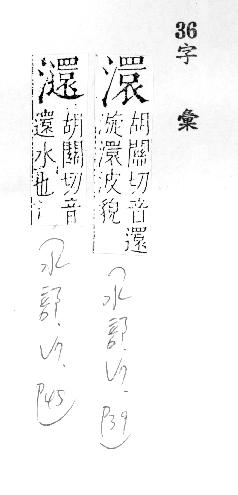 36字彙
澴
胡關切音還
漩澴波貌
（水部．巳．P39）
胡關切音
還水也
（水部．巳．P45）